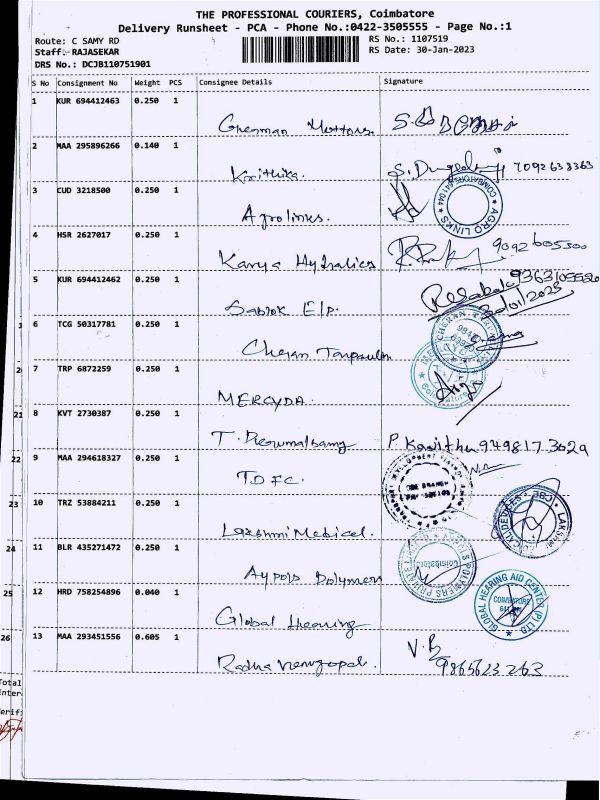 THE PROFESSIONAL COURIERS, Coimbatore
Delivery Runsheet - PCA - Phone No.:0422-3505555 - Page No.:1
Route: C SAMY RD
RS No.: 1107519
Staff: RAJASEKAR
RS Date: 30-Jan-2023
DRS No.: DCJB110751901
S No Consignment No Weight PCS Consignee Details Signature
1 KUR 694412463 0.250 1
2 MAA 295896266 0.140 1
Krithika. 7092633363
3 CUD 3218500 0.250 1
Agrolinks. AGRO LINKS COIMBATORE 641 044
4 HSR 2627017 0.250 1
Kavya Hydralics 9092605300
5 KUR 694412462 0.250 1
Sabrok E/P. 30/01/2023
6 TCG 50317781 0.250 1
Cheran Tarpaulin CHERAN
7 TRP 6872259 0.250 1
MERCYDA.
8 KVT 2730387 0.250 1
T. Perumalsamy P. Kavitha 9498173029
9 MAA 294618327 0.250 1
TDFC.
10 TRZ 53884211 0.250 1
Laxshmi Medical.
11 BLR 435271472 0.250 1
Aypols Polymers
12 HRD 758254896 0.040 1
Global Hearing GLOBAL HEARING AID CENTER (P) LTD COIMBATORE
13 MAA 293451556 0.605 1
Radha Venugopal. V.B
9865623263
21
22
23
24
25
26
Total